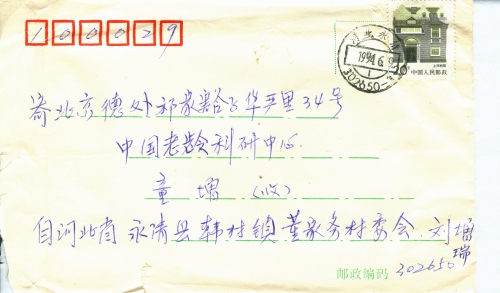 100029
河北永清
1994.6.
1
302650
上海民居
中国人民邮政
寄北京德外祁家豁子华严里34号
中国老龄科研中心
童增(收)
自河北省永清县韩村镇董家务村委会 刘增瑞
邮政编码 302650